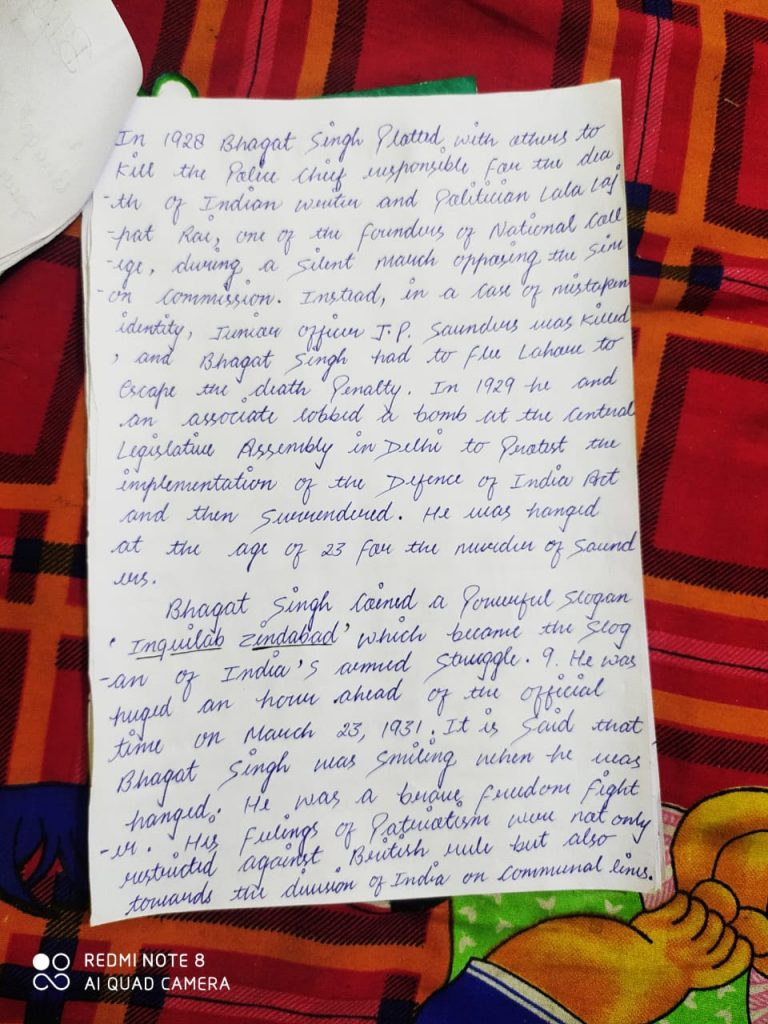 In 1928 Bhagat Singh Plotted with others to
Kill the Police Chief responsible for the dea
-th of Indian writer and Politician Lala Laj
-pat Rai, one of the founders of National Coll
-ege, during a silent march opposing the Sim
-on Commission. Instead, in a case of mistaken
identity, Junior officer J.P. Saunders was killed
, and Bhagat Singh had to flee Lahore to
escape the death Penalty. In 1929 he and
an associate lobbed a bomb at the Central
Legislative Assembly in Delhi to Protest the
implementation of the Defence of India Act
and then Surrendered. He was hanged
at the age of 23 for the murder of Saund
ers.
Bhagat Singh Coined a Powerful Slogan
'Inquilab zindabad' which became the Slog
-an of India's armed Struggle. 9. He was
huged an hour ahead of the official
time on March 23, 1931. It is Said that
Bhagat Singh was Smiling when he was
hanged. He was a brave freedom fight
-er. His feelings of Patriotism were not only
restricted against British rule but also
towards the division of India on Communal lines.
REDMI NOTE 8
AI QUAD CAMERA